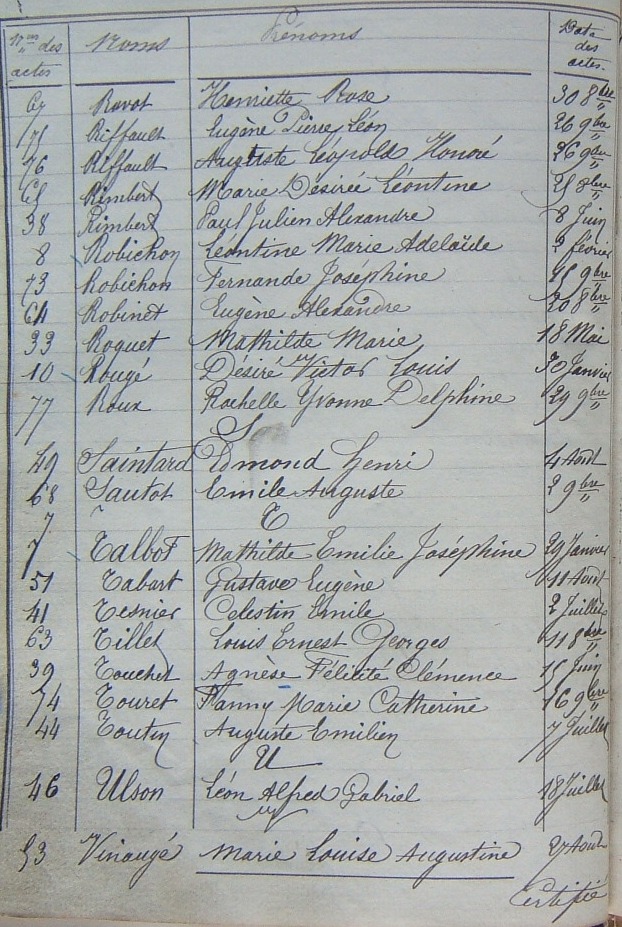 Nos des actes Noms Prénoms Date des actes.
67 Ravot Henriette Rose 30 8bre
75 Riffault Eugène Pierre Léon 26 9bre
76 Riffault Auguste Léopold Honoré 26 9bre
65 Rimbert Marie Désirée Léontine 25 8bre
38 Rimbert Paul Julien Alexandre 8 Juin
8 Robichon Léontine Marie Adelaïde 2 février
73 Robichon Fernande Joséphine 15 9bre
64 Robinet Eugène Alexandre 20 8bre
33 Roquet Mathilde Marie 18 Mai
10 Rougé Désiré Victor Louis 30 Janvier
77 Roux Rachelle Yvonne Delphine 29 9bre
S
49 Saintard Edmond Henri 4 Août
68 Sautot Emile Auguste 2 9bre
T
7 Talbot Mathilde Emilie Joséphine 29 Janvier
51 Tabart Gustave Eugène 11 Août
41 Tesnier Celestin Emile 2 Juillet
63 Tillet Louis Ernest Georges 11 8bre
39 Touchet Agnèse Félicité Clémence 15 Juin
74 Touret Fanny Marie Catherine 16 9bre
44 Toutin Auguste Emilien 7 Juillet
U
46 Ulson Léon Alfred Gabriel 18 Juillet
53 Vinaugé Marie Louise Augustine 27 Août
Certifié